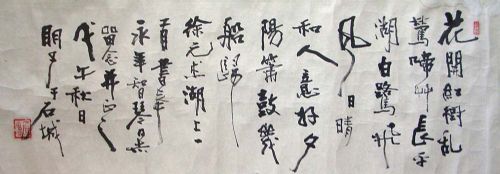 花開紅樹乱
鶯啼艸長平
湖白鷺飛
風日晴
和人意好夕
陽簫鼓幾
船歸
徐元杰湖上一
首書奉
永華智琴
留念并正之
戊午秋日
于石城